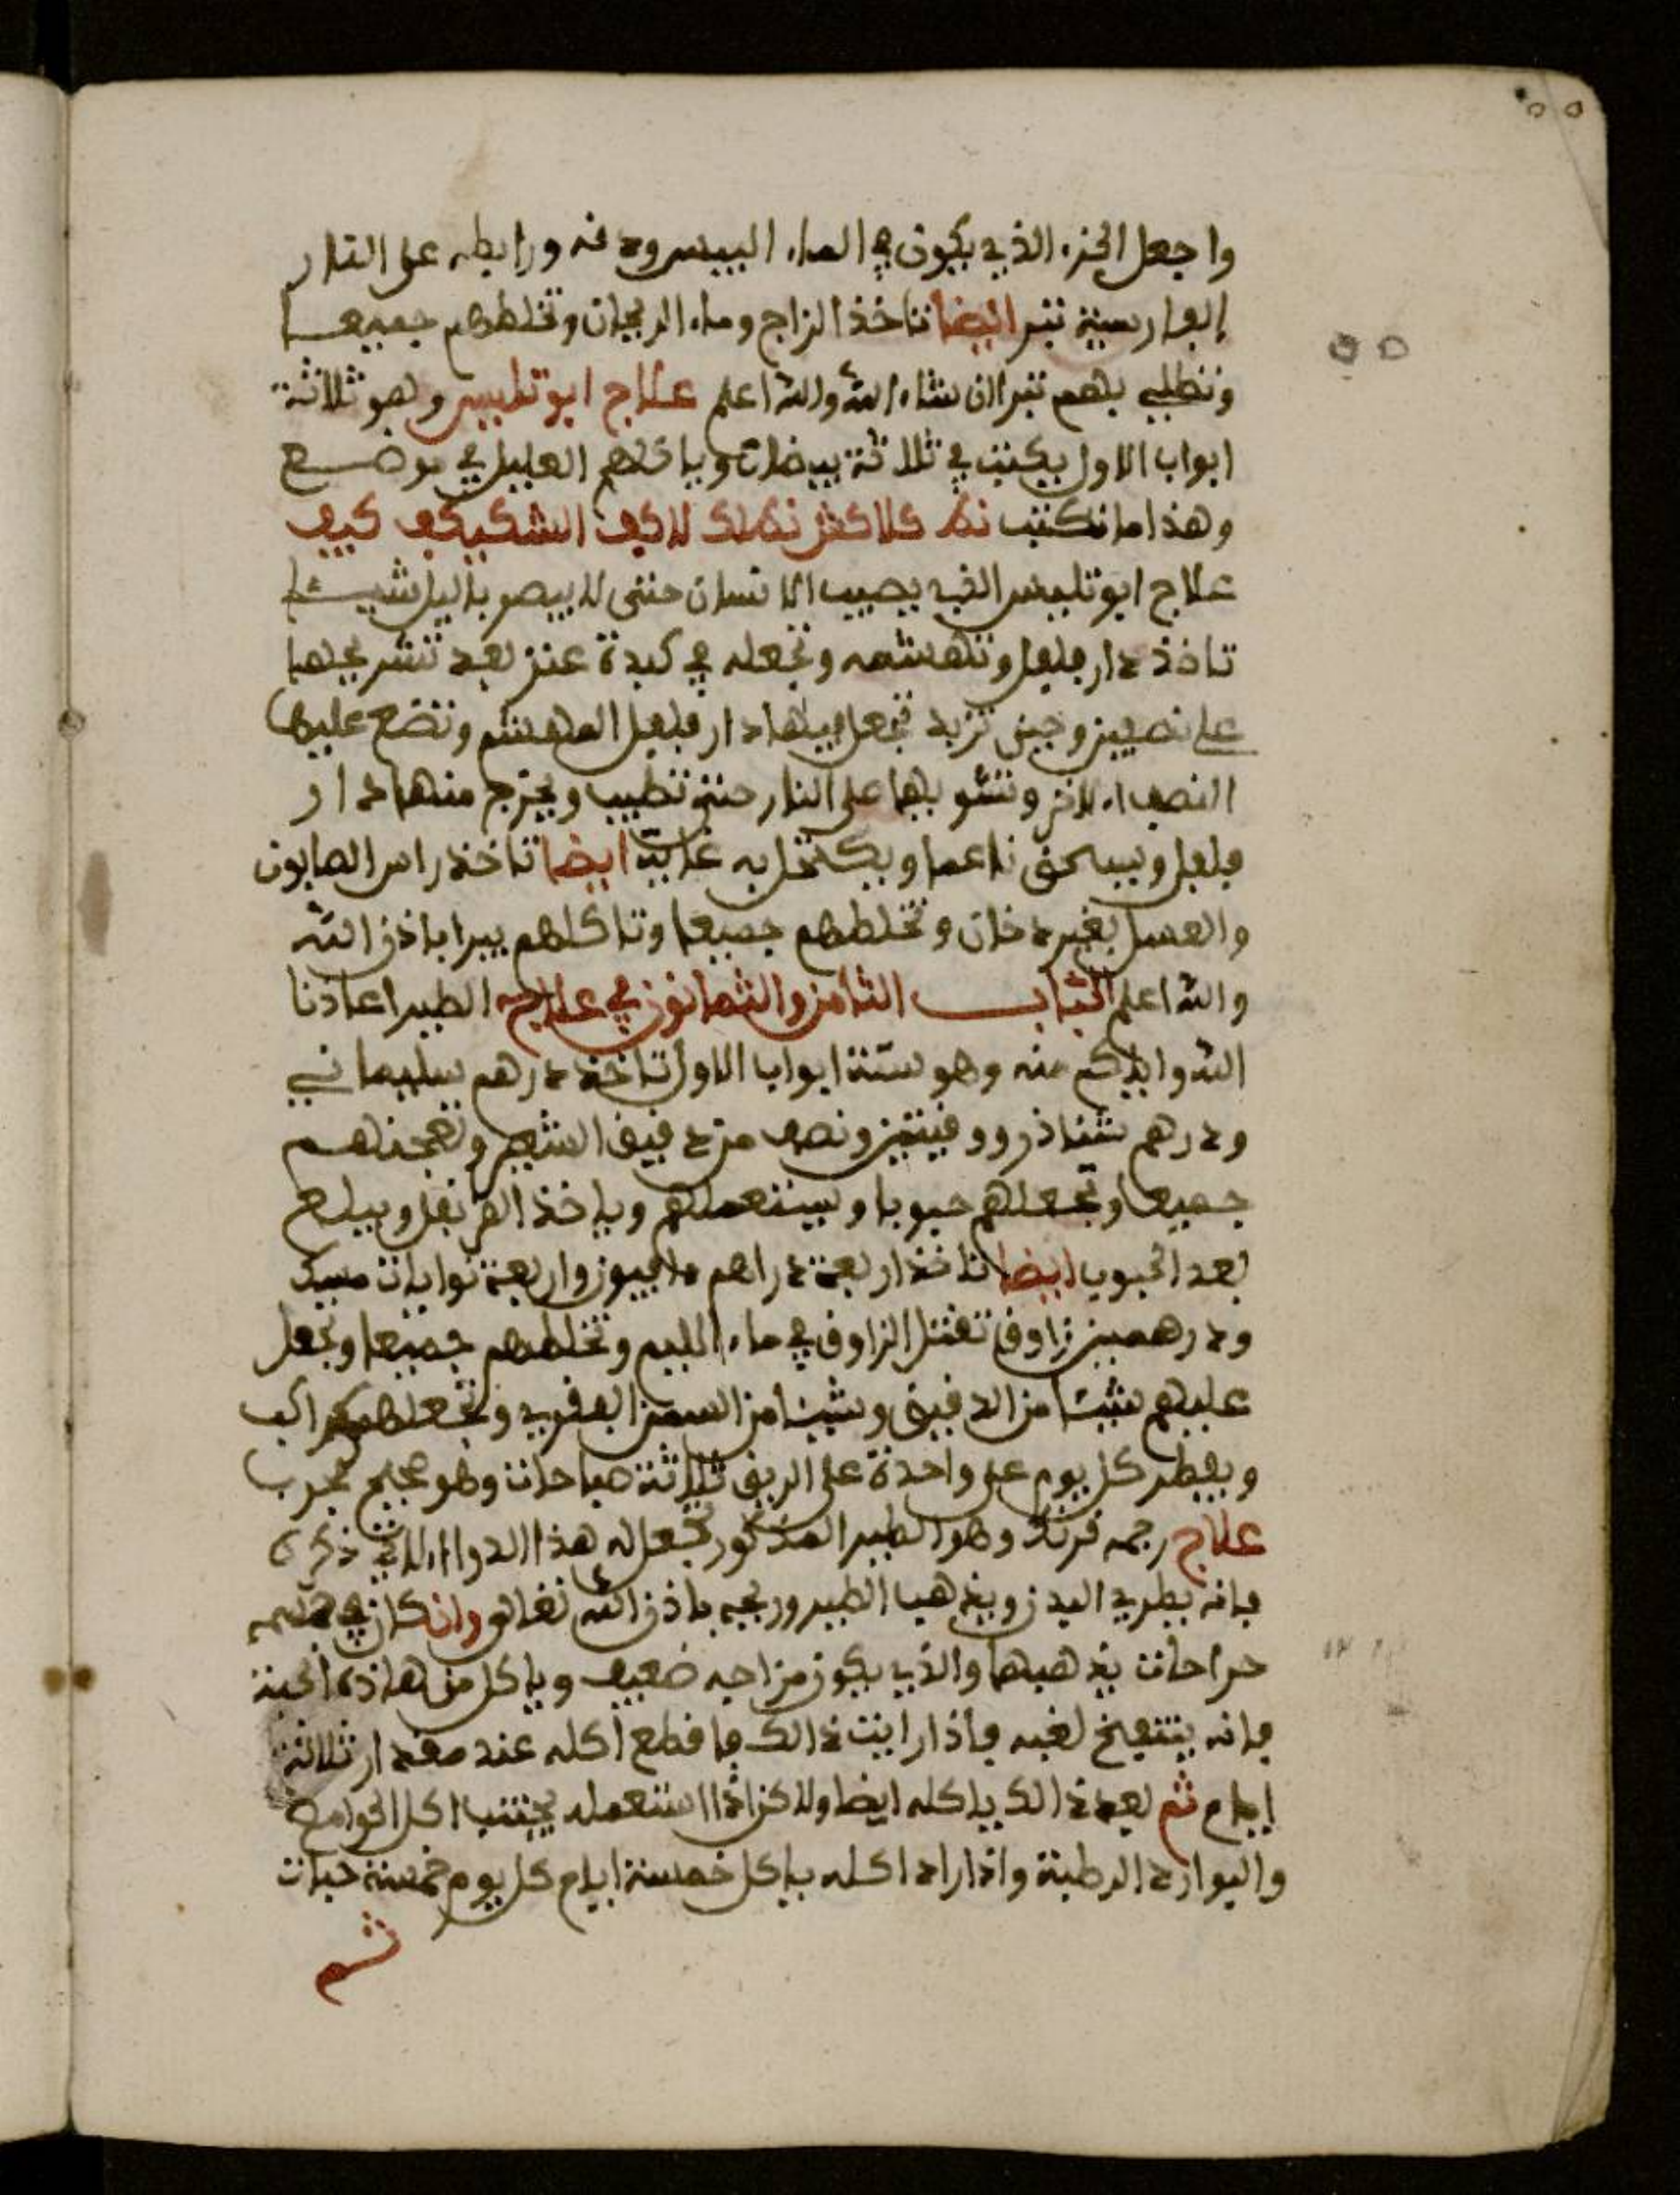 ٥٥
واجعل الخزء الذي يكون في الماء اليبس ودفه ورابطه على النار
الفارسية تبر ايضا تاخذ الزاج وماء الريحان وتخلطهم جميعا
٥٥
وتطلي بهم تبرا ان شاء الله والله اعلم علاج ابو تليس وهو ثلاثة
ابواب الاول يكتب في ثلاثة بيضات وياكلهم العليل في موضع
وهذا ما تكتب
علاج ابو تليس الذي يصيب الانسان حتى لا يبصر باليل شيئا
تاخذ دار فلفل وتهشمه وتجعله في كبدة عنز بعد تشريحها
على نصبين وحين تريد تجعل فيها دار فلفل المهشم وتضع عليها
النصف الاخر وتشويها على النار حتى تطيب ويخرج منها دار
فلفل ويسحق ناعما ويكتحل به غاية ايضا تاخذ راس الصابون
والعسل بغير دخان وتخلطهم جميعا وتاكلهم يبرا باذن الله
والله اعلم الباب الثامن والثمانون في علاج الطير اعاذنا
الله واياكم منه وهو ستة ابواب الاول تاخذ درهم سليماني
ودرهم شناذر ووقيتين ونصف من دقيق الشعير وتعجنهم
جميعا وتجعلهم حبوبا ويستعملهم وياخذ القرنفل ويبلع
بعد الحبوب ايضا تاخذ اربعة دراهم افيون واربعة نوايات مسك
ودرهمين زاوق تقتل الزاوق في ماء الليم وتخلطهم جميعا وتجعل
عليهم شيئا من الدقيق وشيئا من السمن البقري وتجعلهم كراكب
ويفطر كل يوم على واحدة على الريق ثلاثة صباحات وهو صحيح مجرب
علاج رجمه فرنك وهو الطير المذكور تجعل له هذا الدواء الاتي ذكره
فانه يطري البدن ويذهب الطير وريحه باذن الله تعالى وان كان في جسمه
جراحات يذهبها والذي يكون مزاجه ضعيف وياكل من هاذه الحبة
فانه ينتفخ لغبه فاذا رايت ذالك فاقطع اكله عنه مقدار ثلاثة
ايام ثم بعد ذالك ياكله ايضا ولاكن اذا استعمله يجتنب اكل الحوامض
والبوارد الرطبة واذا اراد اكله ياكل خمسة ايام كل يوم خمسة حبات
ثم